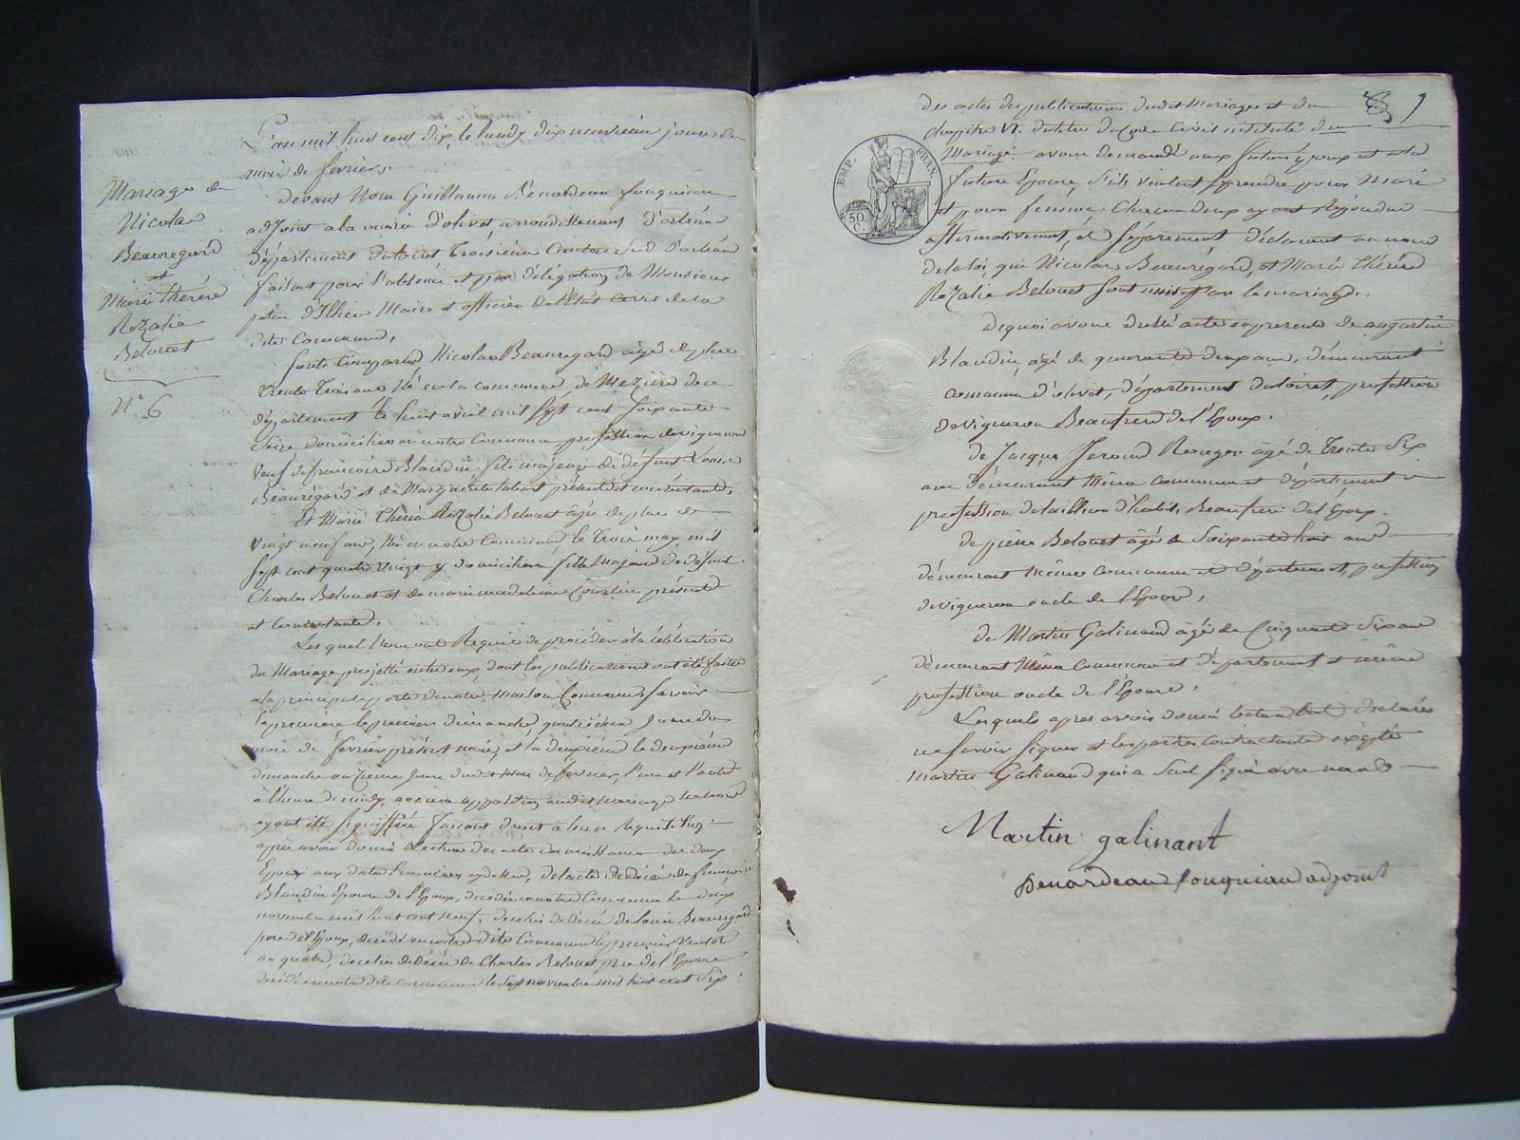 L'an mil huit cent dix, le lundy dixneuvieme jour du
mois de février,
Mariage de
Nicolas
Beauregard
et
Marie thérèse
Rozalie
Belouet
N° 6
devant Nous Guillaume Rénardeau fouqueau
adjoint a la mairie d'olivet arrondissement d'orléans
département du loiret troisième Canton Sud d'orléans
faisant pour l'absence et par délégation de Monsieur
maire et officier de l'état Civil de la
dite Commune,
Sont Comparus, Nicolas Beauregard âgé de plus
trente trois ans Né en la commune de Mezière de ce
département le huit avril mil Sept cent Soixante
Seize, domicilié en notre Commune profession de vigneron
veuf de françoise Blandin fils majeur de défunt Louis
Beaurégard et de Margueritte présente et consentante,
Et Marie Thérèse Rozalie Belouet âgée de plus de
vingt neuf ans, Née en notre Commune, le trois may mil
Sept cent quatre vingt y domiciliée fille Majeure de défunt
Charles Belouet et de marie madelaine présente
et Consentante,
Les quels Nous ont Requis de procéder à la Célébration
du Mariage projetté entre eux, dont les publications ont été faites
a la principale porte de notre Maison Commune Savoir
la premiere le premier dimanche, quatrième Jour du
mois de février présent mois, et la deuxième le deuxième
dimanche onzième Jour dudit Mois de fevrier, l'une et l'autre
à l'heure de midy, aucune opposition audit Mariage ne nous
ayant été Signiffiée faisant droit à leur requisition
après avoir donné Lecture des actes de naissance des deux
Epoux aux dates énoncées cy dessus, de l'acte de décès de françoise
Blandin Epouse de l'Epoux, décédée en notre Commune le deux
novembre mil huit cent neuf, de celui de décès de Louis Beauregard
pere de l'Epoux, décédé en notre dite Commune le premier
an quatre, de celui de décès de Charles Belouet pere de l'Epouse
décédé en notre dite commune le Sept novembre mil huit cent Six
9
EMP. FRAN.
50 C.
des actes de publications dudit Mariage et du
chapitre VI du titre du Code Civil intitulé du
Mariage avons demandé aux futur Epoux et a la
future Epouse, S'ils veulent Se prendre pour Mari
et pour femme, Chacun d'eux ayant Répondu
affirmativement, et Séparément, déclarons au nom
de la loi, que Nicolas Beaurégard, et Marie Thérèse
Rozalie Belouet Sont unis par le mariage.
De quoi avons dressé acte en présence de augustin
Blandin, agé de quarante deux ans, démeurant
commune d'olivet, département du loiret, profession
de vigneron Beaufrere de l'Epoux.
de Jacque âgé de trente Six
ans démeurant Même Commune et département
profession de tailleur d'habits Beaufrere de l'Epoux.
de pierre Belouet âgé de Soixante huit ans
démeurant même commune et département, profession
de vigneron oncle de l'Epouse,
de Martin Galinand âgé de Cinquante Six ans
démeurant Même Commune et département et même
profession oncle de l'Epouse,
Lesquels apres avoir donné lecture ont déclarés
ne Savoir Signer et les parties Contractantes excepté
Martin Galinand qui a Seul Signé avec nous
Martin galinant
Renardeau fouqueau adjoint